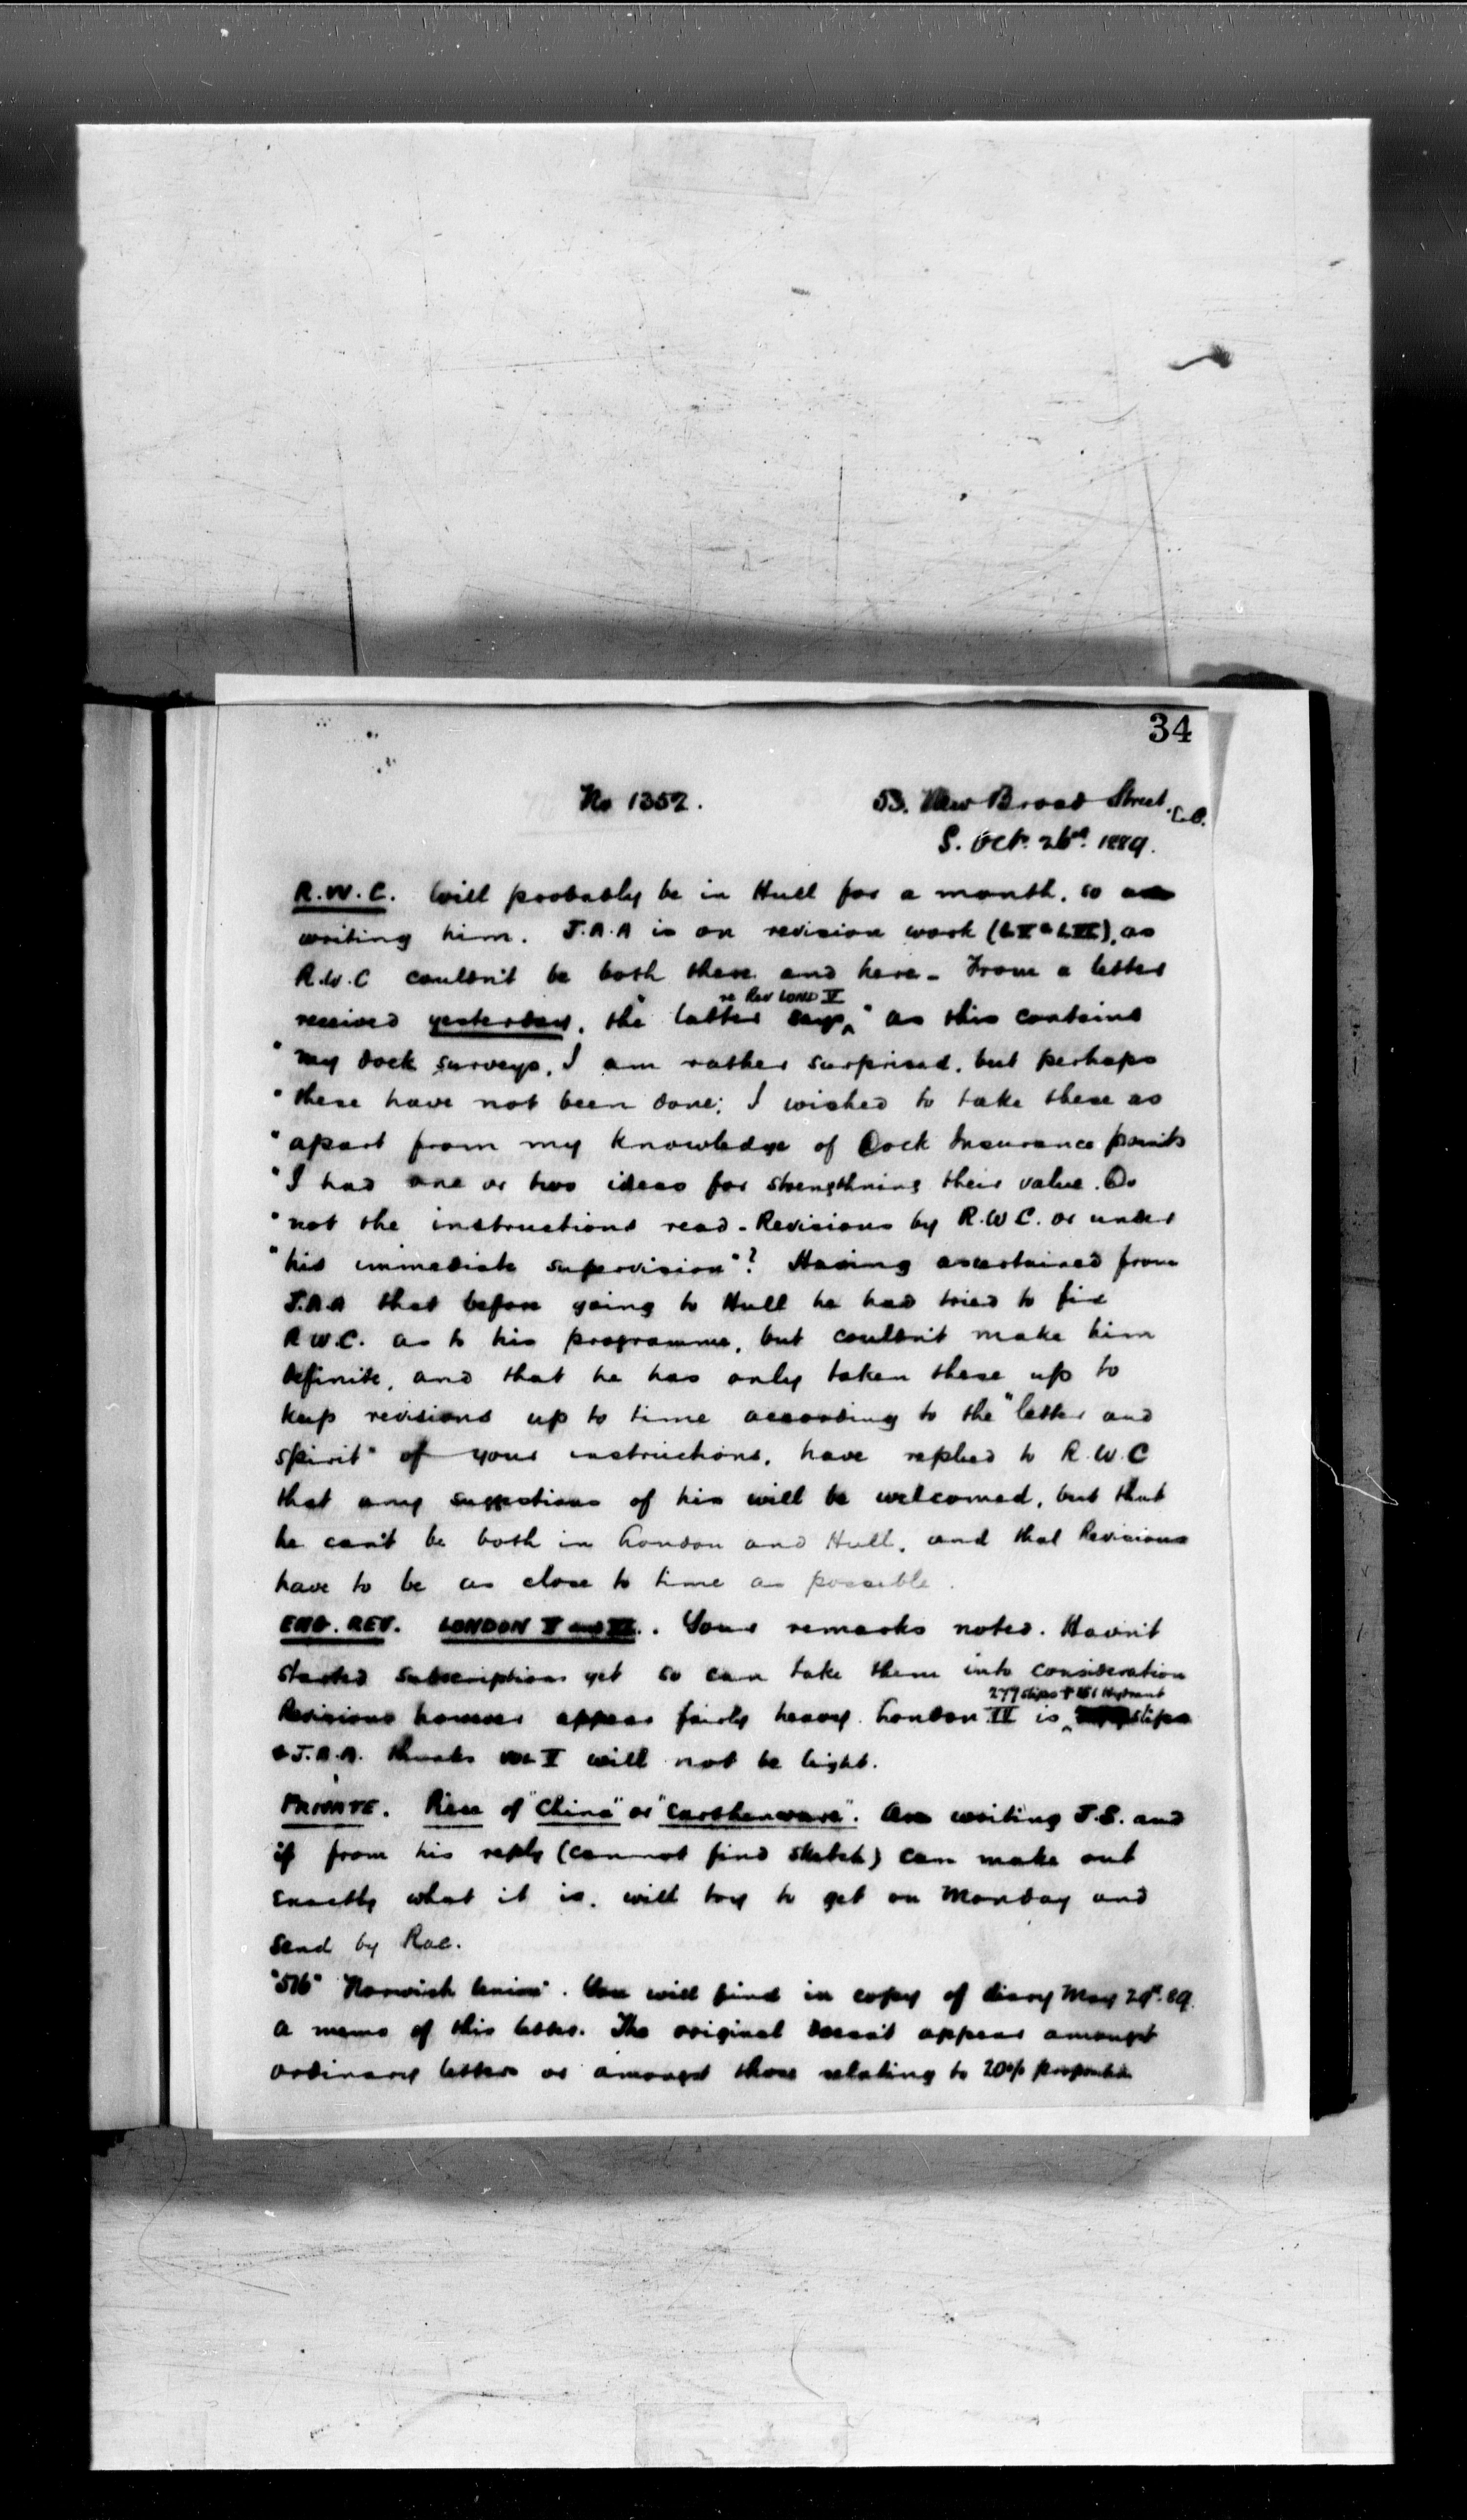 34
No 1352. 53. New Broad Street. E.C.
S. Oct. 26th. 1889.
R.W.C. Will probably be in Hull for a month, so am
writing him. J.A.A is on revision work (L V & L VI), as
R.W.C couldn't be both there and here - From a letter
received yesterday, the latter says re Rev Lond V " as this contains
" my dock surveys, I am rather surprised, but perhaps
" these have not been done; I wished to take these as
" apart from my knowledge of Dock Insurance points
" I had one or two ideas for strengthning their value. Do
" not the instructions read - Revisions by R.W.C. or under
" his immediate supervision"? Having ascertained from
J.A.A that before going to Hull he had tried to fix
R.W.C. as to his programme, but couldn't make him
definite, and that he has only taken these up to
keep revisions up to time according to the "letter and
spirit" of your instructions, have replied to R.W.C
that any suggestions of his will be welcomed, but that
he can't be both in London and Hull, and that Revisions
have to be as close to time as possible.
ENG. REV. LONDON V and VI. Your remarks noted. Havn't
started subscriptions yet so can take them into consideration
Revisions however appear fairly heavy. London IV is 279 slips + 151 Hydrant slips
& J.A.A. thinks vol V will not be light.
PRIVATE. Piece of "China" or "Earthenware". Am writing J.S. and
if from his reply (cannot find sketch) can make out
exactly what it is, will try to get on Monday and
send by Rae.
"516" Norwich Union". You will find in copy of diary May 29th. 89.
a memo of this letter. The original doesn't appear amongst
ordinary letters or amongst those relating to 20% proportion